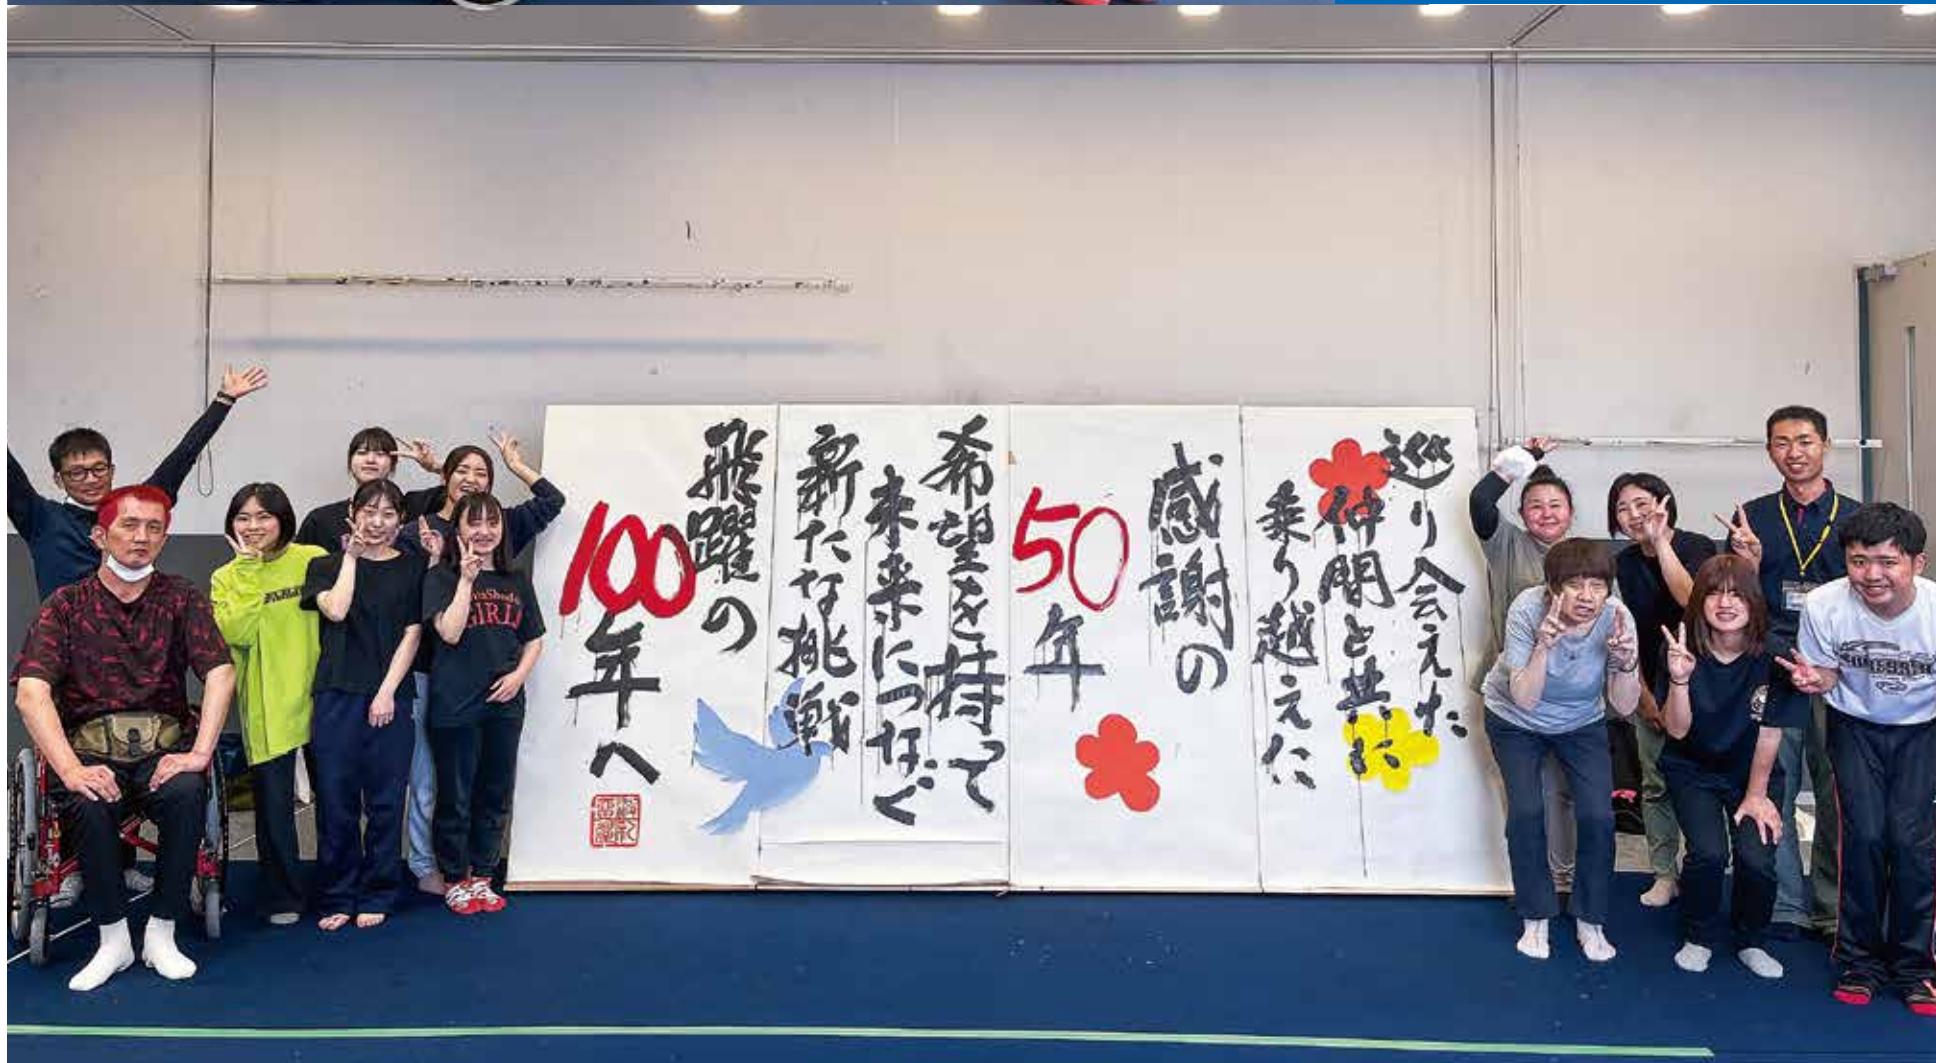 巡り会えた
仲間と共に
乗り越えた
感謝の
50年
希望を持って
未来につなぐ
新たな挑戦
飛躍の
100年へ
GIRLS